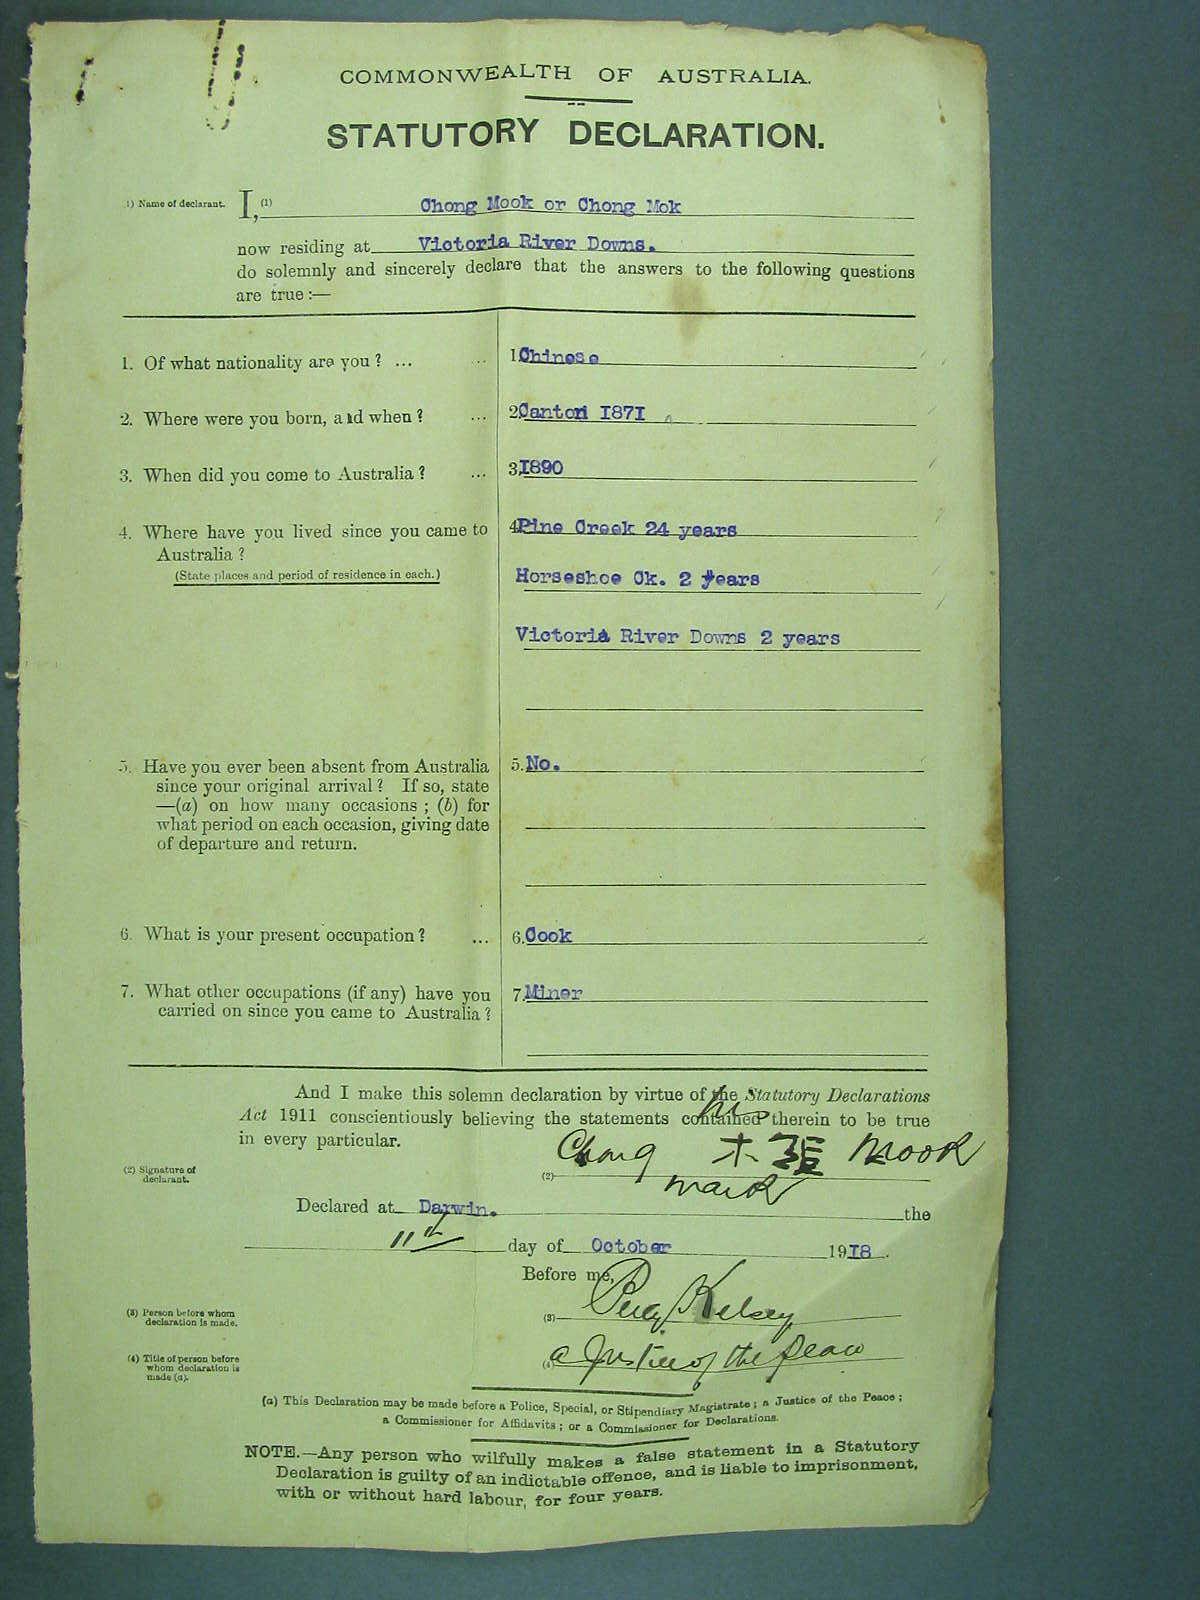 COMMONWEALTH OF AUSTRALIA.
STATUTORY DECLARATION.
1) Name of declarant. I, (1) Chong Mook or Chong Mok
now residing at Victoria River Downs.
do solemnly and sincerely declare that the answers to the following questions
are true :—
1. Of what nationality are you ? ... ... 1. Chinese
2. Where were you born, and when ? ... 2. Canton 1871
3. When did you come to Australia ? ... 3. 1890
4. Where have you lived since you came to 4. Pine Creek 24 years
Australia ?
(State places and period of residence in each.) Horseshoe Ck. 2 years
Victoria River Downs 2 years
5. Have you ever been absent from Australia 5. No.
since your original arrival ? If so, state
—(a) on how many occasions ; (b) for
what period on each occasion, giving date
of departure and return.
6. What is your present occupation ? ... 6. Cook
7. What other occupations (if any) have you 7. Miner
carried on since you came to Australia ?
And I make this solemn declaration by virtue of the Statutory Declarations
Act 1911 conscientiously believing the statements contained therein to be true
in every particular.
his
(2) Signature of declarant. (2) Chong 木張 Mook
mark
Declared at Darwin. the
11th day of October 1918.
Before me,
(3) Person before whom declaration is made. (3) Percy Kelsey
(4) Title of person before whom declaration is made (a). (4) a Justice of the Peace
(a) This Declaration may be made before a Police, Special, or Stipendiary Magistrate ; a Justice of the Peace ;
a Commissioner for Affidavits ; or a Commissioner for Declarations.
NOTE.—Any person who wilfully makes a false statement in a Statutory
Declaration is guilty of an indictable offence, and is liable to imprisonment,
with or without hard labour, for four years.